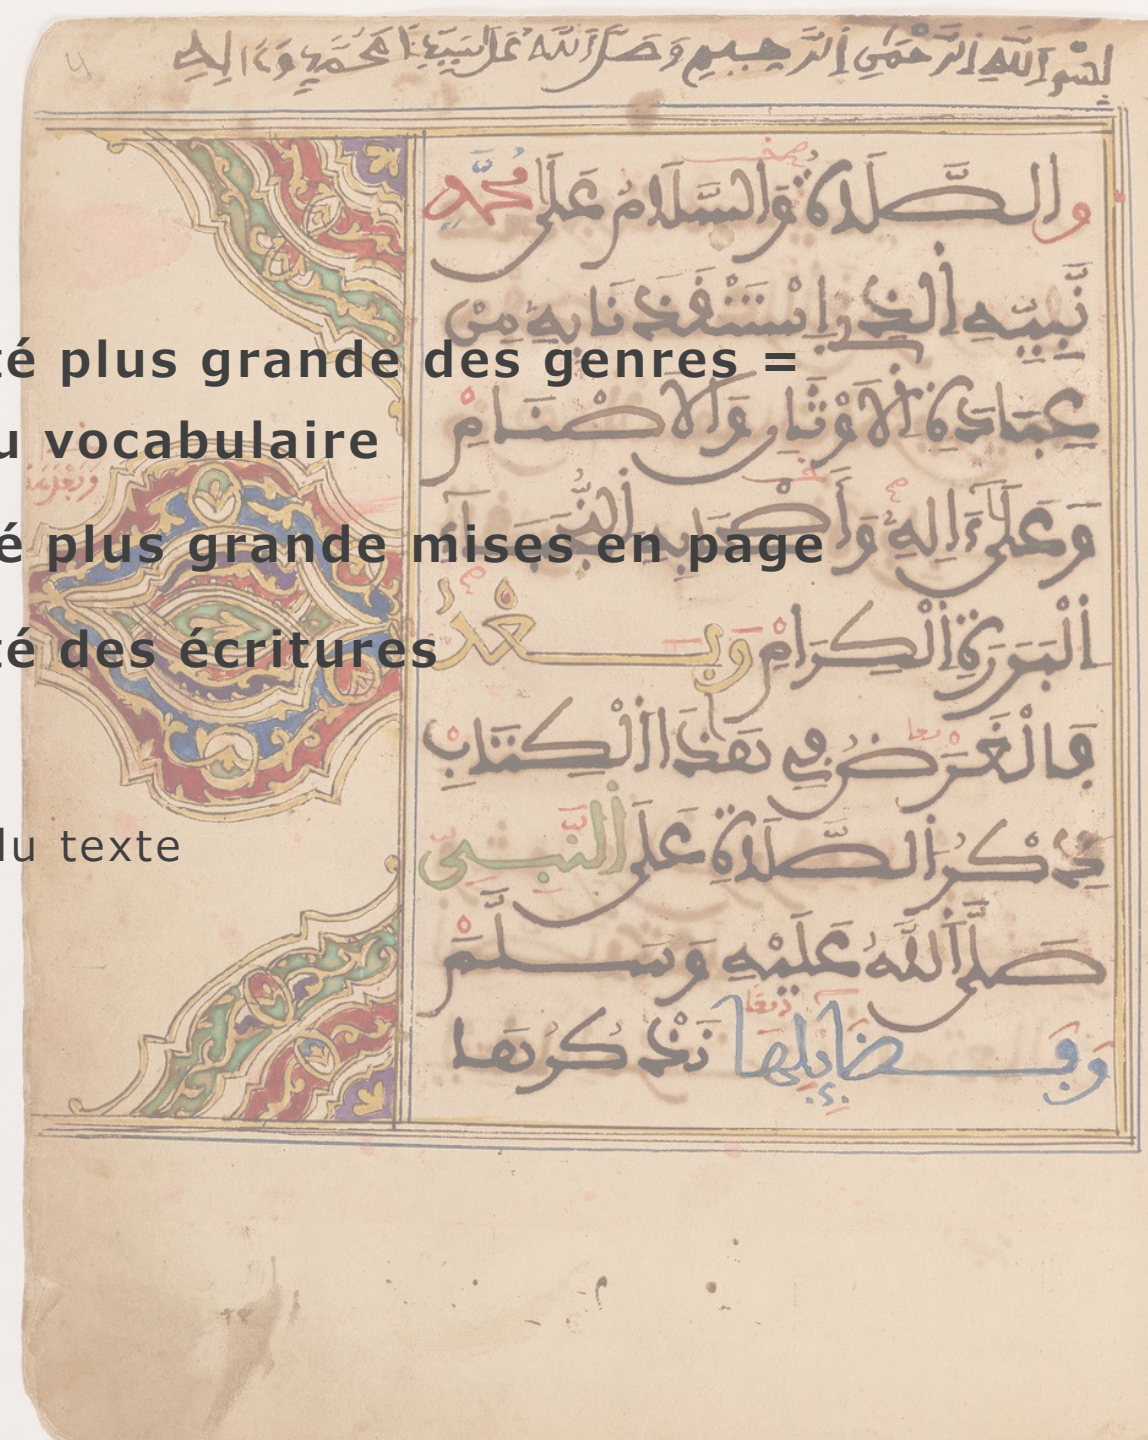 بسم الله الرحمن الرحيم وصلى الله على سيدنا محمد وءاله
والصلاة والسلام على محمد
نبيه الذي استنقذنا به من
عبادة الأوثان والأصنام
وعلى ءاله وأصحابه النجباء
البررة الكرام وبعد
فالغرض في هذا الكتاب
ذكر الصلاة على النبي
صلى الله عليه وسلم
وفضايلها نذكرها
té plus grande des genres =
u vocabulaire
é plus grande mises en page
té des écritures
du texte